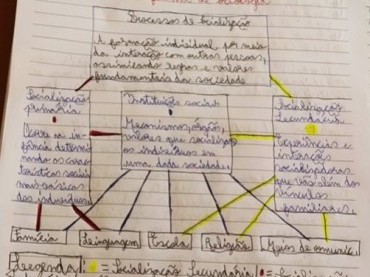 Processos de Socialização
A formação individual, por meio
da interação com outras pessoas,
assimilando regras e valores
fundamentais da sociedade
Socialização
primária
Ocorre na in-
fância determi-
nando as carac-
terísticas sociais
mais básicas
dos indivíduos
Instituições sociais
Mecanismos, órgãos,
valores que socializam
os indivíduos em
uma dada sociedade.
Socialização
Secundária
Experiências e
interações
socializadoras
que vão além dos
vínculos
familiares
Família
Linguagem
Escola
Religião
Meios de comunic.
Legenda: = Socialização Secundária =